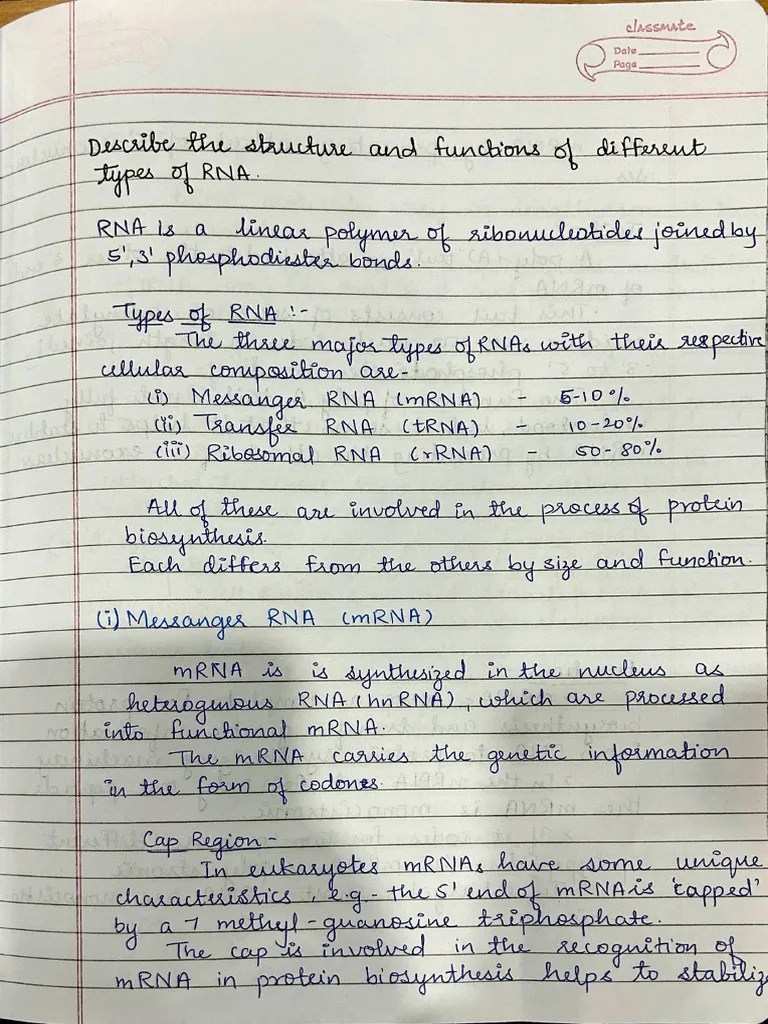 classmate
Date
Page
Describe the structure and functions of different
types of RNA.
RNA is a linear polymer of ribonucleotides joined by
5', 3' phosphodiester bonds.
Types of RNA :-
The three major types of RNAs with their respective
cellular composition are-
(i) Messanger RNA (mRNA) - 5-10%
(ii) Transfer RNA (tRNA) - 10-20%
(iii) Ribosomal RNA (rRNA) - 50-80%
All of these are involved in the process of protein
biosynthesis.
Each differs from the others by size and function.
(i) Messanger RNA (mRNA)
mRNA is is synthesized in the nucleus as
heterogenous RNA (hnRNA), which are processed
into functional mRNA.
The mRNA carries the genetic information
in the form of codones.
Cap Region -
In eukaryotes mRNAs have some unique
characteristics, e.g.- the 5' end of mRNA is 'capped'
by a 7 methyl-guanosine triphosphate.
The cap is involved in the recognition of
mRNA in protein biosynthesis helps to stabiliz